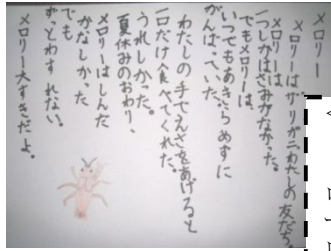 メロリー
メロリーはザリガニわたしの友だち
メロリーは
一つしかはさみがなかった。
でもメロリーは、
いつでもあきらめずに
がんばっていた。
わたしの手でえさをあげると
一口だけ食べてくれた。
うれしかった。
夏休みのおわり、
メロリーはしんだ
かなしかった
でも
ずっとわすれない。
メロリー大すきだよ。